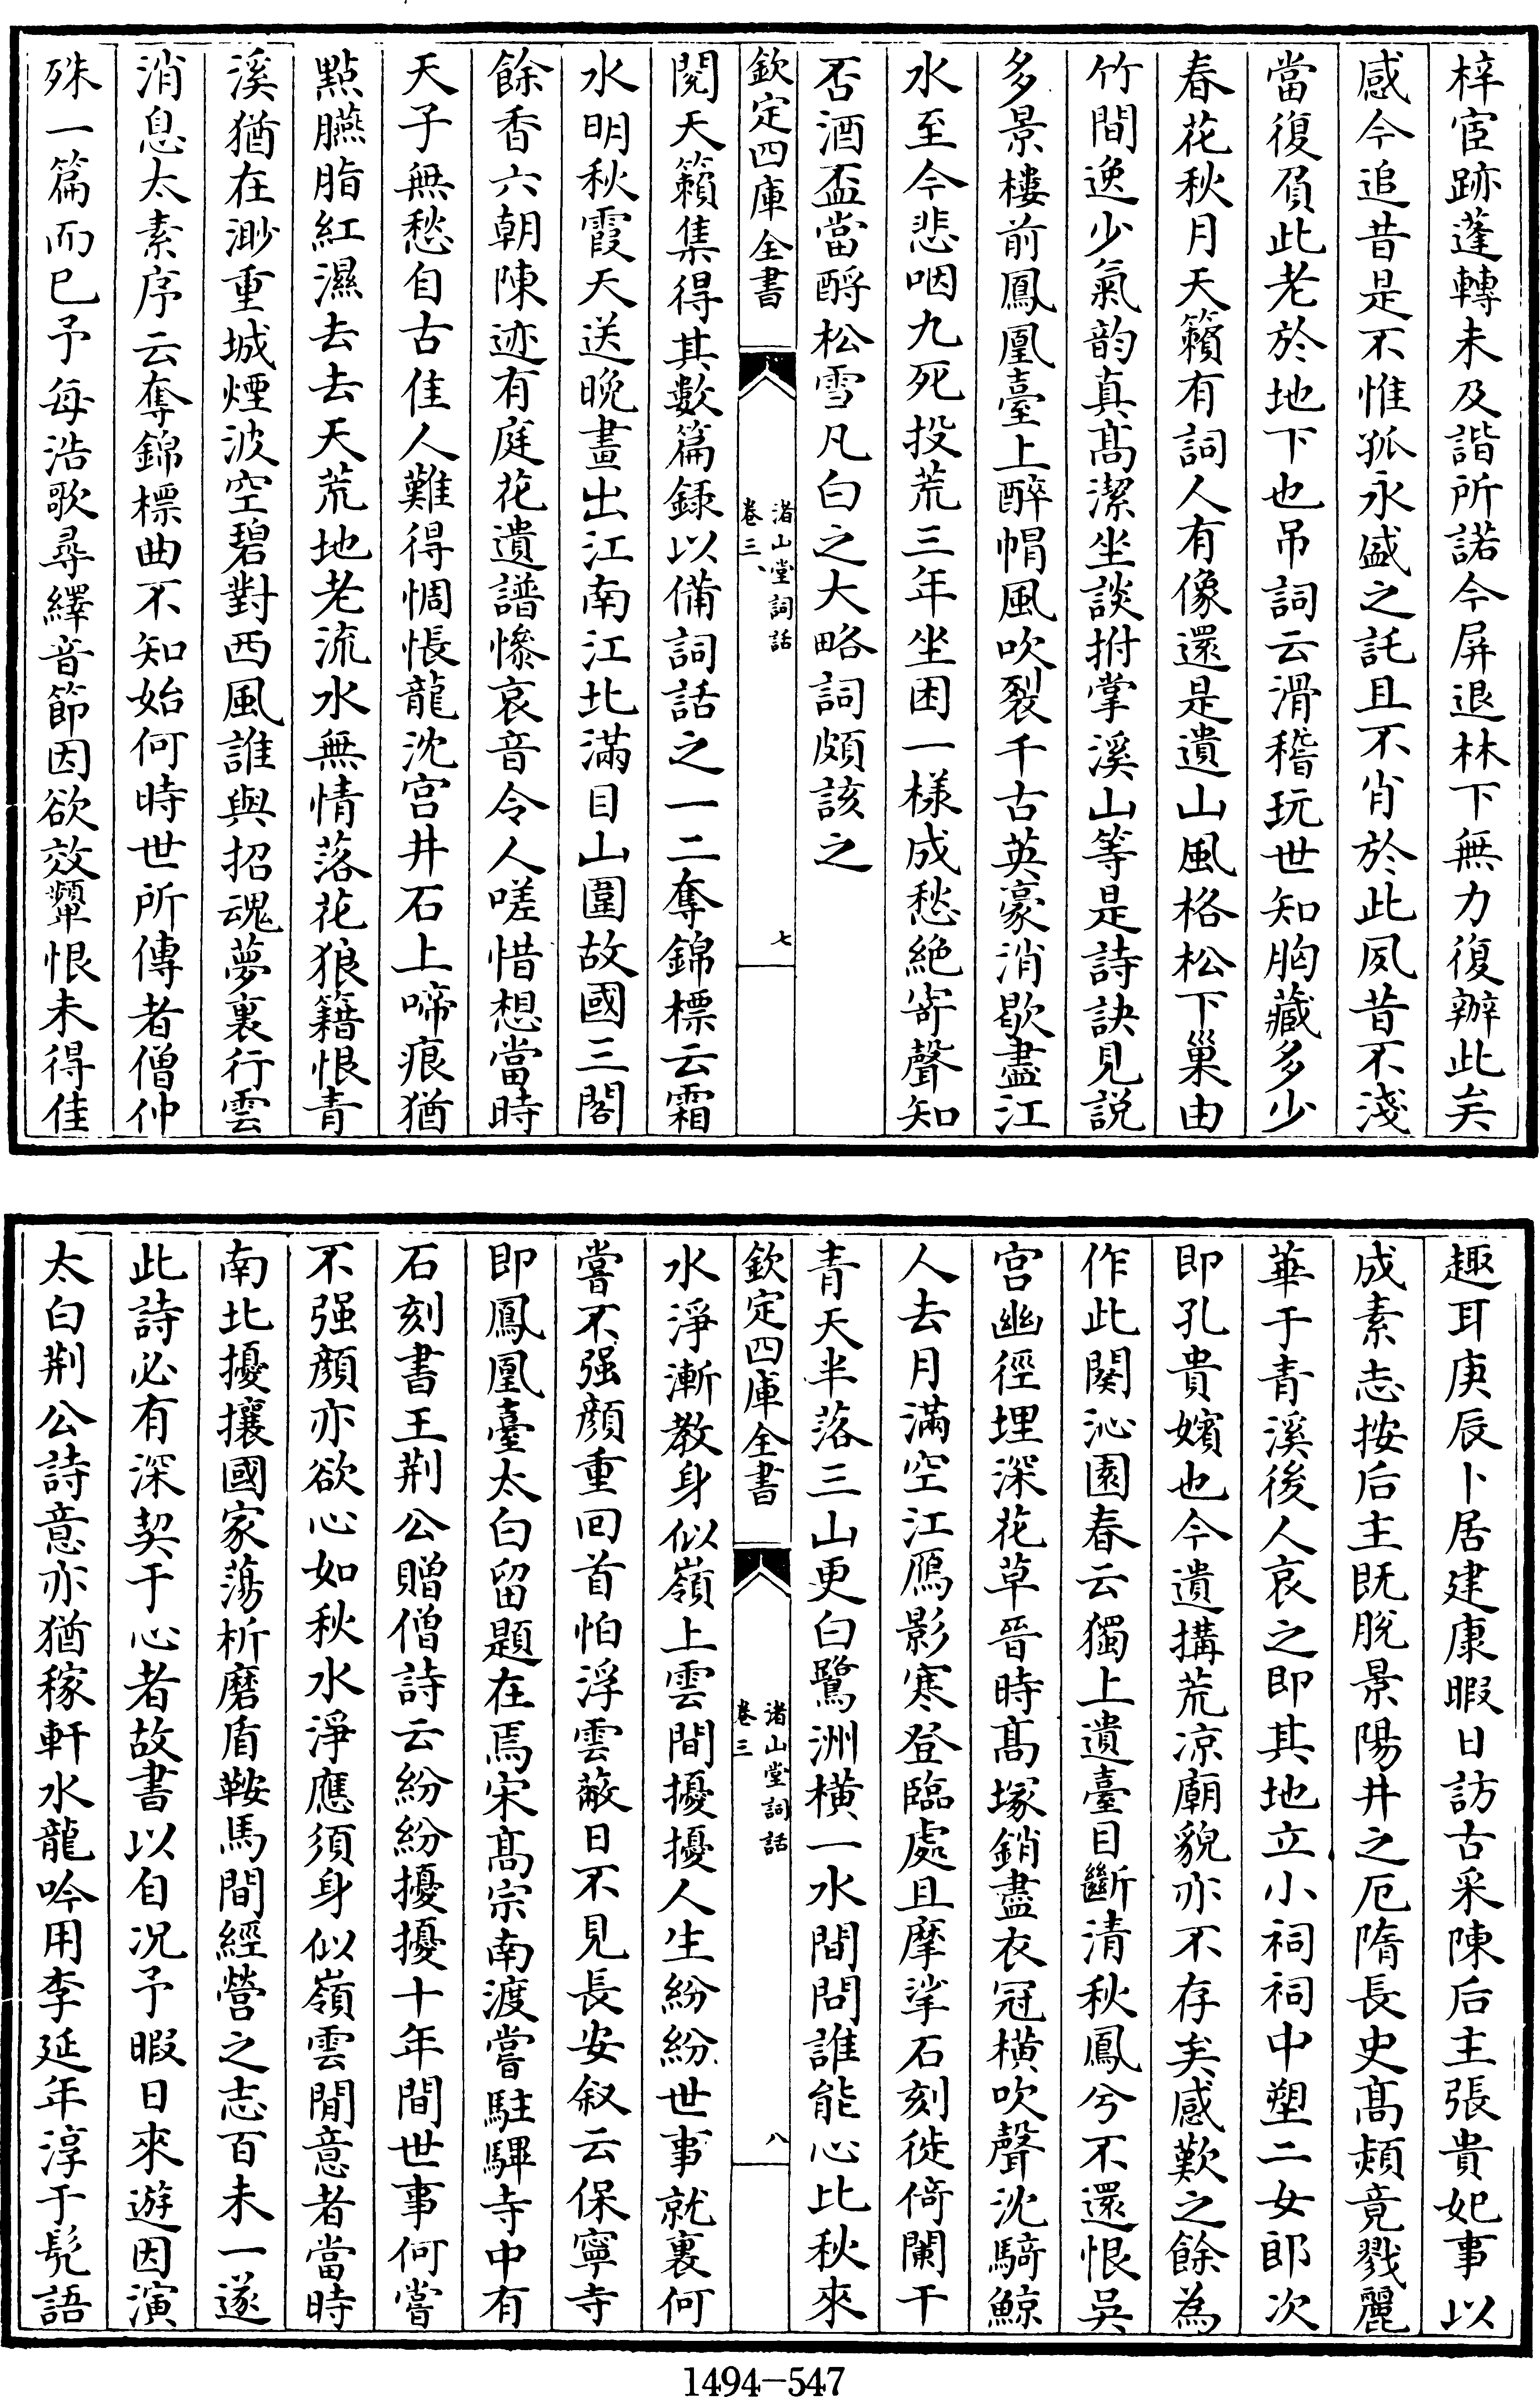 梓宦跡蓬轉未及諧所諾今屏退林下無力復辦此矣
感今追昔是不惟孤永盛之託且不肖於此夙昔不淺
當復負此老於地下也吊詞云滑稽玩世知胸藏多少
春花秋月天籟有詞人有像還是遺山風格松下巢由
竹間逸少氣韵真髙潔坐談拊掌溪山等是詩訣見説
多景樓前鳳凰臺上醉㡌風吹裂千古英豪消歇盡江
水至今悲咽九死投荒三年坐困一様成愁絶寄聲知
否酒盃當酹松雪凡白之大略詞頗該之
欽定四庫全書
渚山堂詞話
卷三
七
閱天籟集得其數篇録以備詞話之一二奪錦標云霜
水明秋霞天送晚畫出江南江北滿目山圍故國三閣
餘香六朝陳迹有庭花遺譜慘哀音令人嗟惜想當時
天子無愁自古佳人難得惆悵龍沈宫井石上啼痕猶
點臙脂紅濕去去天荒地老流水無情落花狼籍恨青
溪猶在渺重城煙波空碧對西風誰與招魂夢裏行雲
消息太素序云奪錦標曲不知始何時世所傳者僧仲
殊一篇而已予每浩歌尋繹音節因欲效顰恨未得佳
趣耳庚辰卜居建康暇日訪古采陳后主張貴妃事以
成素志按后主既脱景陽井之厄隋長史髙熲竟戮麗
華于青溪後人哀之即其地立小祠祠中塑二女郎次
即孔貴嬪也今遺搆荒凉廟貌亦不存矣感歎之餘為
作此闋沁園春云獨上遺臺目斷清秋鳳兮不還恨吳
宫幽徑埋深花草晉時髙塚銷盡衣冠横吹聲沈騎鯨
人去月滿空江鴈影寒登臨處且摩挲石刻徙倚闌干
青天半落三山更白鷺洲横一水間問誰能心比秋來
欽定四庫全書
渚山堂詞話
卷三
八
水淨漸教身似嶺上雲間擾擾人生紛紛世事就裏何
嘗不强顔重回首怕浮雲蔽日不見長安叙云保寧寺
即鳳凰臺太白留題在焉宋髙宗南渡嘗駐驆寺中有
石刻書王荆公贈僧詩云紛紛擾擾十年間世事何嘗
不强顔亦欲心如秋水淨應須身似嶺雲閒意者當時
南北擾攘國家蕩析磨盾鞍馬間經營之志百未一遂
此詩必有深契于心者故書以自况予暇日來遊因演
太白荆公詩意亦猶稼軒水龍吟用李延年淳于髠語
1494—547